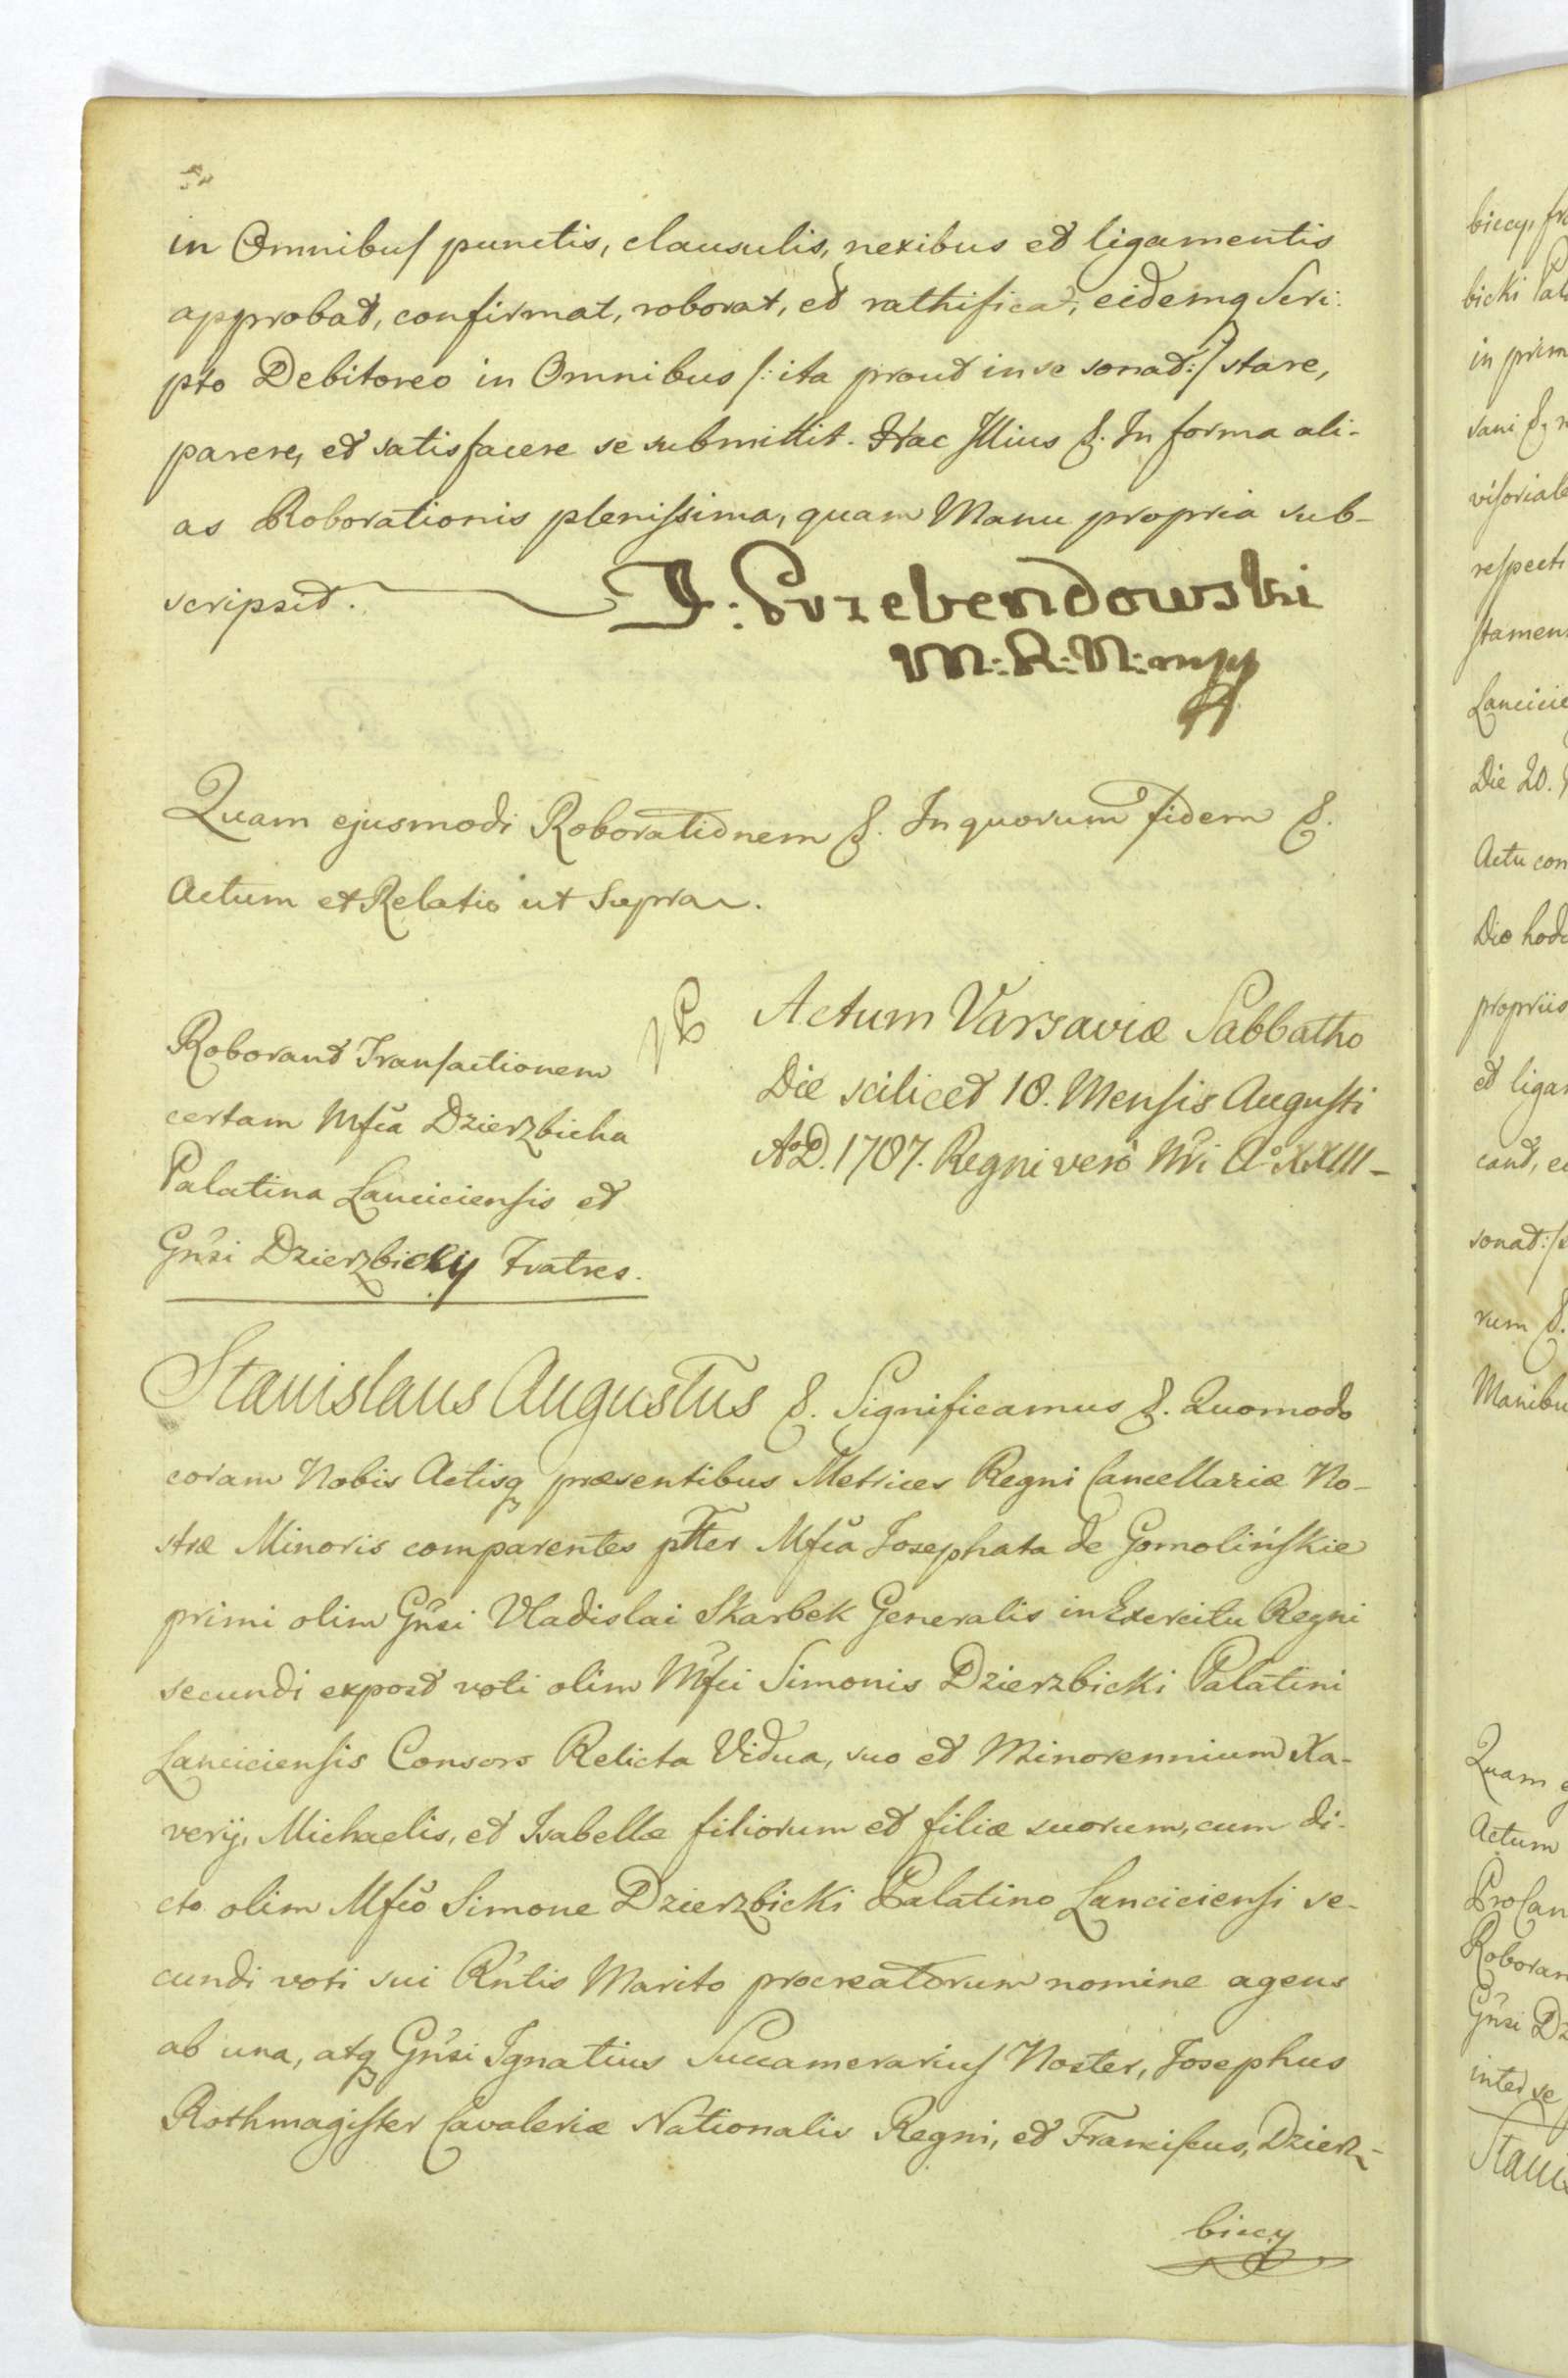 in Omnibus punctis, clausulis, nexibus et ligamentis
approbat, confirmat, roborat, et rathificat, eidemq Scri-
pto Debitoreo in Omnibus /: ita prout in se sonat :/ stare,
parere, et satisfacere se submittit. Hac Illius &. In forma ali-
as Roborationis plenissima, quam Manu propria sub-
scripsit. J: Przebendowski
M:R:N:mpp
Quam ejusmodi Roborationem &. In quorum fidem &.
Actum et Relatio ut Supra.
Roborant Transactionem
certam Mfca Dzierzbicka
Palatina Lanciciensis et
Gnsi Dzierzbickÿ Fratres.
Actum Varsaviæ Sabbatho
Die scilicet 18. Mensis Augusti
AoD. 1787. Regni vero Nri Ao XXIII-
Stanislaus Augustus &. Significamus &. Quomodo
coram Nobis Actisq præsentibus Metrices Regni Cancellariæ No-
stræ Minoris comparentes pltter Mfca Josephata de Gomolińskie
primi olim Gnsi Vladislai Skarbek Generalis in Exercitu Regni
secundi expost voti olim Mfci Simonis Dzierzbicki Palatini
Lanciciensis Consors Relicta Vidua, suo et Minorennium Xa-
verij, Michaelis, et Isabellæ filiorum et filiæ suorum, cum di-
cto olim Mfco Simone Dzierzbicki Palatino Lanciciensi se-
cundi voti sui Rntis Marito procreatorum nomine agens
ab una, atq Gnsi Ignatius Succamerarius Noster, Josephus
Rothmagister Cavaleriæ Nationalis Regni, et Franciscus, Dzierz-
biccy
biccy, fra
bicki Pala
in prim
sani &. n
visoriale
respecti
stamen
Lancicie
Die 20.
Actu con
Die hod
propriis
et ligar
cant, ei
sonat:/ s
rum &.
Manibu
Quam e
Actum
ProCan
Roboran
Gnsi Dz
inter se
Stanis